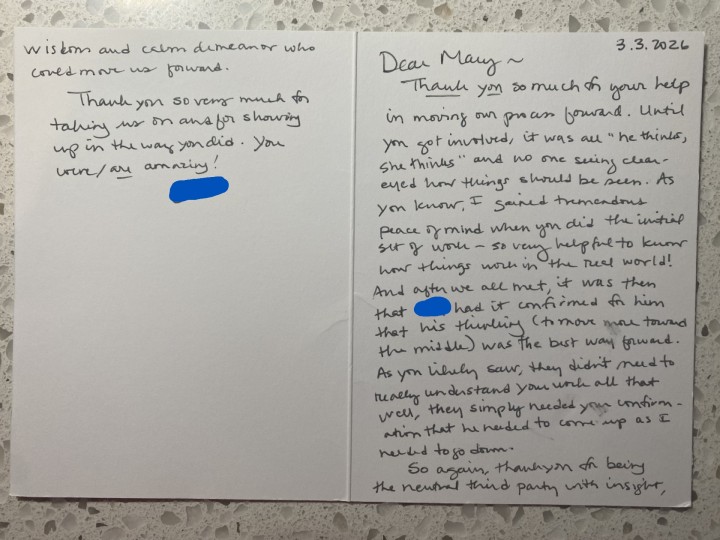 3.3.2026
Dear Mary ~
Thank you so much for your help
in moving our process forward. Until
you got involved, it was all "he thinks,
she thinks" and no one seeing clear-
eyed how things should be seen. As
you know, I gained tremendous
peace of mind when you did the initial
set of work – so very helpful to know
how things work in the real world!
And after we all met, it was then
that had it confirmed for him
that his thinking (to move more toward
the middle) was the best way forward.
As you likely saw, they didn't need to
really understand your work all that
well, they simply needed your confirm-
ation that he needed to come up as I
needed to go down.
So again, thank you for being
the neutral third party with insight,
wisdom and calm demeanor who
could move us forward.
Thank you so very much for
taking us on and for showing
up in the way you did. You
were/are amazing!